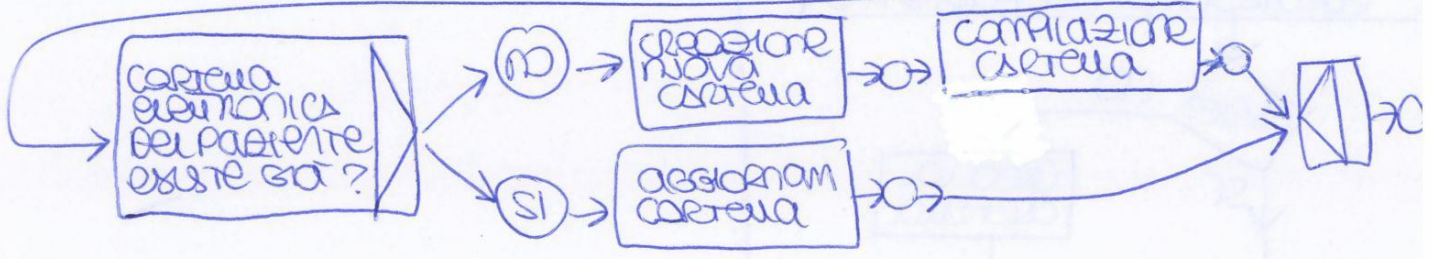 CARTELLA
ELETTRONICA
DEL PAZIENTE
ESISTE GIÀ?
NO
SI
CREAZIONE
NUOVA
CARTELLA
COMPILAZIONE
CARTELLA
AGGIORNAM
CARTELLA